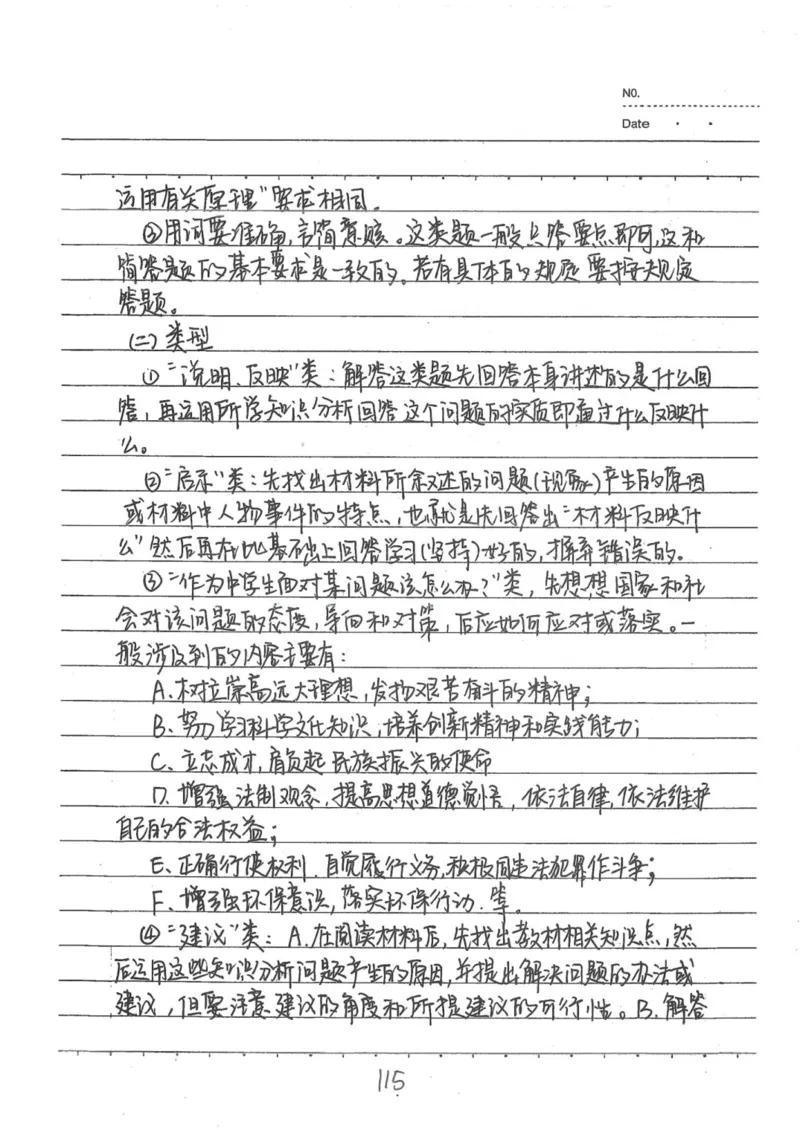 NO.
Date
运用有关原理"要求相同。
③用词要准确,言简意赅。这类题一般只答要点即可,这和
简答题的基本要求是一致的。若有具体的规定要按规定
答题。
(二)类型
①"说明、反映"类:解答这类题先回答本身讲述的是什么回
答,再运用所学知识分析回答这个问题的实质即通过什么反映什
么。
②"启示"类:先找出材料所叙述的问题(现象)产生的原因
或材料中人物事件的特点,也就是先回答出"材料反映什
么"然后再在此基础上回答学习(坚持)好的,摒弃错误的。
③"作为中学生面对某问题该怎么办?"类,先想想国家和社
会对该问题的态度,导向和对策,后应如何应对或落实。一
般涉及到的内容主要有:
A.树立崇高远大理想,发扬艰苦奋斗的精神;
B、努力学习科学文化知识,培养创新精神和实践能力;
C、立志成才,肩负起民族振兴的使命
D.增强法制观念,提高思想道德觉悟,依法自律,依法维护
自己的合法权益;
E、正确行使权利、自觉履行义务,积极同违法犯罪作斗争;
F、增强环保意识,落实环保行动.等。
④"建议"类:A.在阅读材料后,先找出教材相关知识点,然
后运用这些知识分析问题产生的原因,并提出解决问题的办法或
建议,但要注意建议的角度和所提建议的可行性。B.解答
115